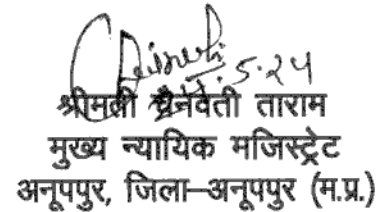 5.24
श्रीमती चैनवती ताराम
मुख्य न्यायिक मजिस्ट्रेट
अनूपपुर, जिला–अनूपपुर (म.प्र.)